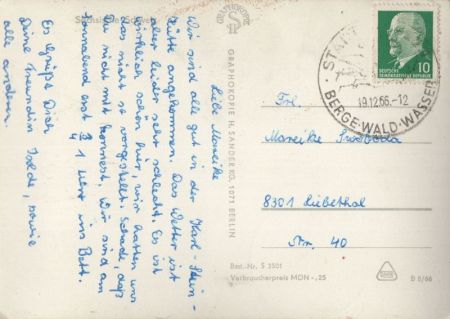 Sächsische Schweiz
Liebe Mareike
Wir sind alle gut in der Karl-Stein-
Hütte angekommen. Das Wetter ist
aber leider sehr schlecht. Es ist
wirklich schön hier, wir hatten uns
das nicht so vorgestellt. Schade, daß
Du nicht mit konntest. Wir sind am
Sonnabend erst ¾ 1 Uhr ins Bett.
Es grüßt Dich
Deine Freundin Isolde, sowie
alle anderen.
GRAPHOKOPIE
GRAPHOKOPIE H. SANDER KG, 1071 BERLIN
10
DEUTSCHE
DEMOKRATISCHE REPUBLIK
STADT
19.12.66.-12
BERGE·WALD·WASSER
Frl.
Mareike
8301 Liebethal
Str. 40
Best.-Nr. S 3501
Verbraucherpreis MDN -,25
B 8/66